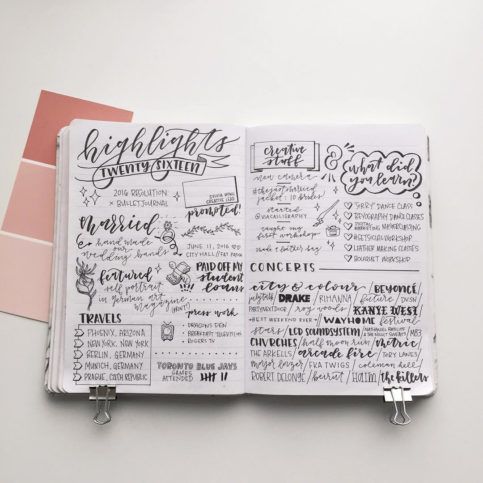 highlights
TWENTY SIXTEEN
2016 RESOLUTION
x BULLET JOURNAL
promoted!
married
hand made our
wedding bands
JUNE 11, 2016
CITY HALL // FAT PASHA
featured
self portrait
in german art
magazine
(PRINT)
PAID OFF MY
student
loans
press work
DRAGONS DEN
BREAKFAST TELEVISION
ROGERS TV
TRAVELS
PHOENIX, ARIZONA
NEW YORK, NEW YORK
BERLIN, GERMANY
MUNICH, GERMANY
PRAGUE, CZECH REPUBLIC
TORONTO BLUE JAYS
GAMES
ATTENDED
creative
stuff
new camera
#thejustmarried
jacket : 10 brides
started
caught my
first workshop!
what did
you learn?
"SORRY" DANCE CLASS
BEYOGRAPHY DANCE CLASSES
DIGITAL MARKETING
LEATHER MAKING CLASSES
BOUQUET WORKSHOP
CONCERTS
city & colour / BEYONCÉ
DRAKE / RIHANNA / future / DVSN
PARTYNEXTDOOR / roy woods / KANYE WEST
*BEST WEEKEND EVER* WAYHOME festival
stars / LCD SOUNDSYSTEM / M83
CHVRCHES / half moon run / metric
THE ARKELLS / arcade fire / TORY LANEZ
major lazer / FKA TWIGS / coleman hell /
ROBERT DELONGE / beirut / HAIM / the killers